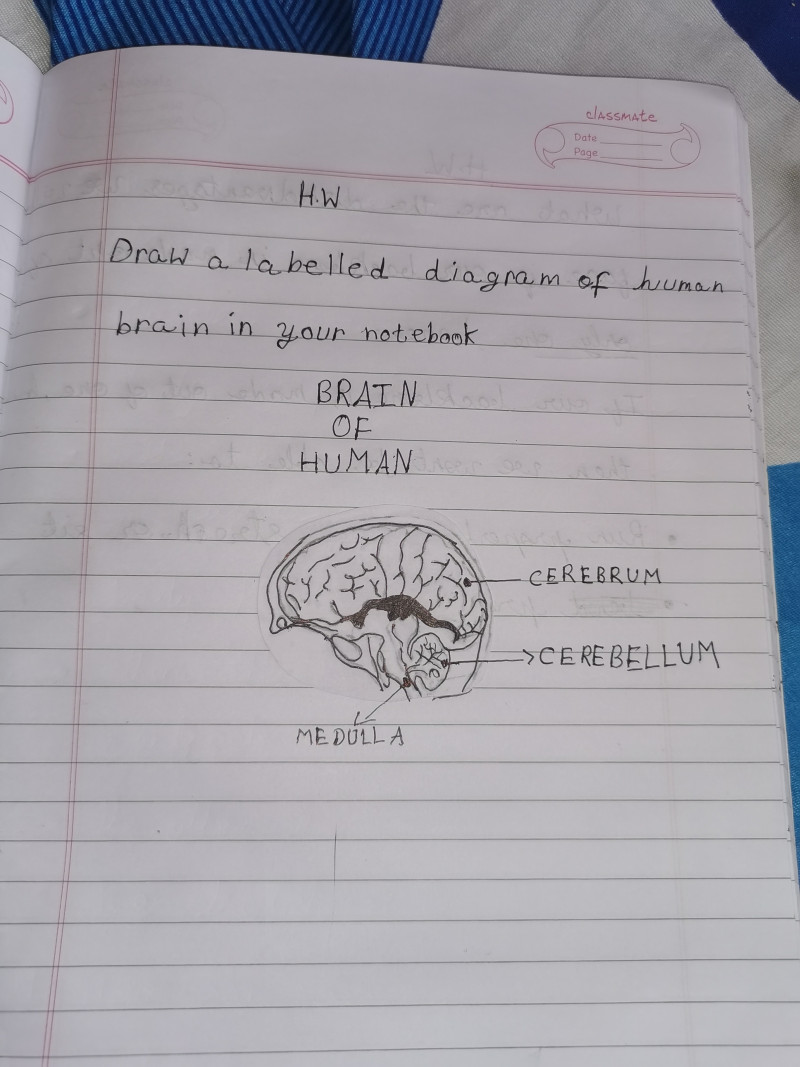 classmate
Date
Page
H.W
Draw a labelled diagram of human
brain in your notebook
BRAIN
OF
HUMAN
CEREBRUM
CEREBELLUM
MEDULLA